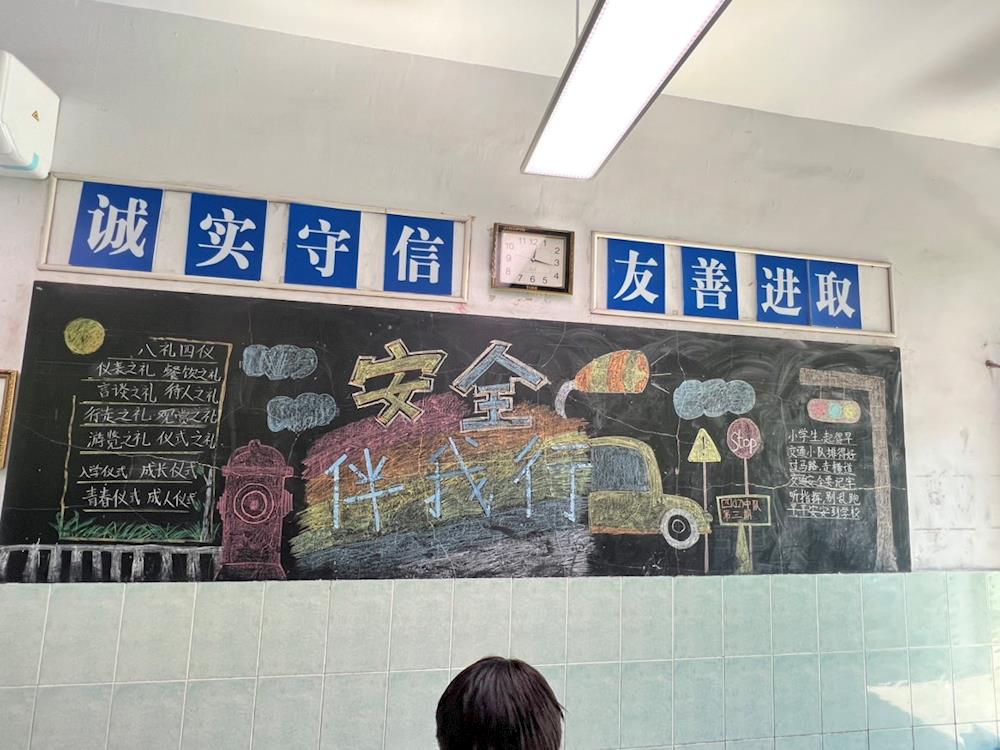 诚实守信
友善进取
八礼四仪
仪表之礼 餐饮之礼
言谈之礼 待人之礼
行走之礼 观赏之礼
游览之礼 仪式之礼
入学仪式 成长仪式
青春仪式 成人仪式
安全
伴我行
Stop
第三期
小学生,起得早
交通小队排得好
过马路,走横道
交通安全要记牢
听指挥,别乱跑
平平安安到学校